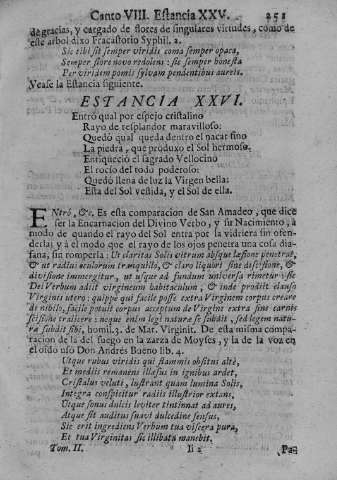 Canto VIII. Estancia XXV. 251
de gracias, y cargado de flores de singulares virtudes, como de
este arbol dixo Fracastorio Syphil. 2.
Sic tibi sit semper viridis coma semper opaca,
Semper flore novo redoleni: sis semper honesta
Per viridem pomis sylvam pendentibus aureis.
Vease la Estancia siguiente.
ESTANCIA XXVI.
Entrò qual por espejo cristalino
Rayo de resplandor maravilloso:
Quedò qual queda dentro el nacar fino
La piedra, que produxo el Sol hermoso.
Enriqueciò el sagrado Vellocino
El rocío del todo poderoso:
Quedò llena de luz la Virgen bella:
Esta del Sol vestida, y el Sol de ella.
ENtrò, &c. Es esta comparacion de San Amadeo, que dice
ser la Encarnacion del Divino Verbo, y su Nacimiento, à
modo de quando el rayo del Sol entra por la vidriera sin ofen-
derla; y à el modo que el rayo de los ojos penetra una cosa dia-
fana, sin romperla: Ut claritas Solis vitrum absque læsione penetrat,
& ut radius oculorum tranquilo, & claro liquori sine discissione, &
divisione immergitur, ut usque ad fundum universa rimetur: sic
Dei Verbum adiit virgineum habitaculum, & inde prodiit clauso
Virginis utero: quippè qui facilè posse extra Virginem corpus creare
de nihilo, facilè potuit corpus acceptum de Virgine extra sine carnis
scissione traiicere: neque enim legi naturæ se subdit, sed legem natu-
ra subdit sibi, homil.3. de Mar. Virginit. De esta misma compa-
racion de la del fuego en la zarza de Moyses, y la de la voz en
el oído usò Don Andrés Bueno lib. 4.
Utque rubus viridis qui flammis obsitus altè,
Et mediis remanens illæsus in ignibus ardet,
Cristalus veluti, lustrant quam lumina Solis,
Integra conspicitur radiis illustrior extans,
Utque sonus dulcis leviter tintinnat ad aures,
Atque sit auditus suavi dulcedine sensus,
Sic erit ingrediens Verbum tua viscera pura,
Et tua Virginitas sic illibata manebit.
Tom. II. Ii 2 Pa-